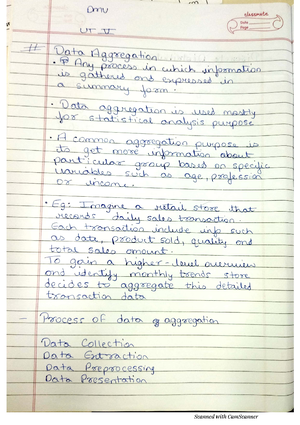 DMU
UT V
classmate
Date
Page
# Data Aggregation
• Any process in which information
is gathered and expressed in
a summary form.
• Data aggregation is used mostly
for statistical analysis purpose
• A common aggregation purpose is
to get more information about
particular group based on specific
variables such as age, profession
or income.
• Eg: Imagine a retail store that
records daily sales transaction.
Each transaction include info such
as date, product sold, quality and
total sales amount.
To gain a higher-level overview
and identify monthly trends store
decides to aggregate this detailed
transaction data
– Process of data aggregation
Data Collection
Data Extraction
Data Preprocessing
Data Presentation
Scanned with CamScanner